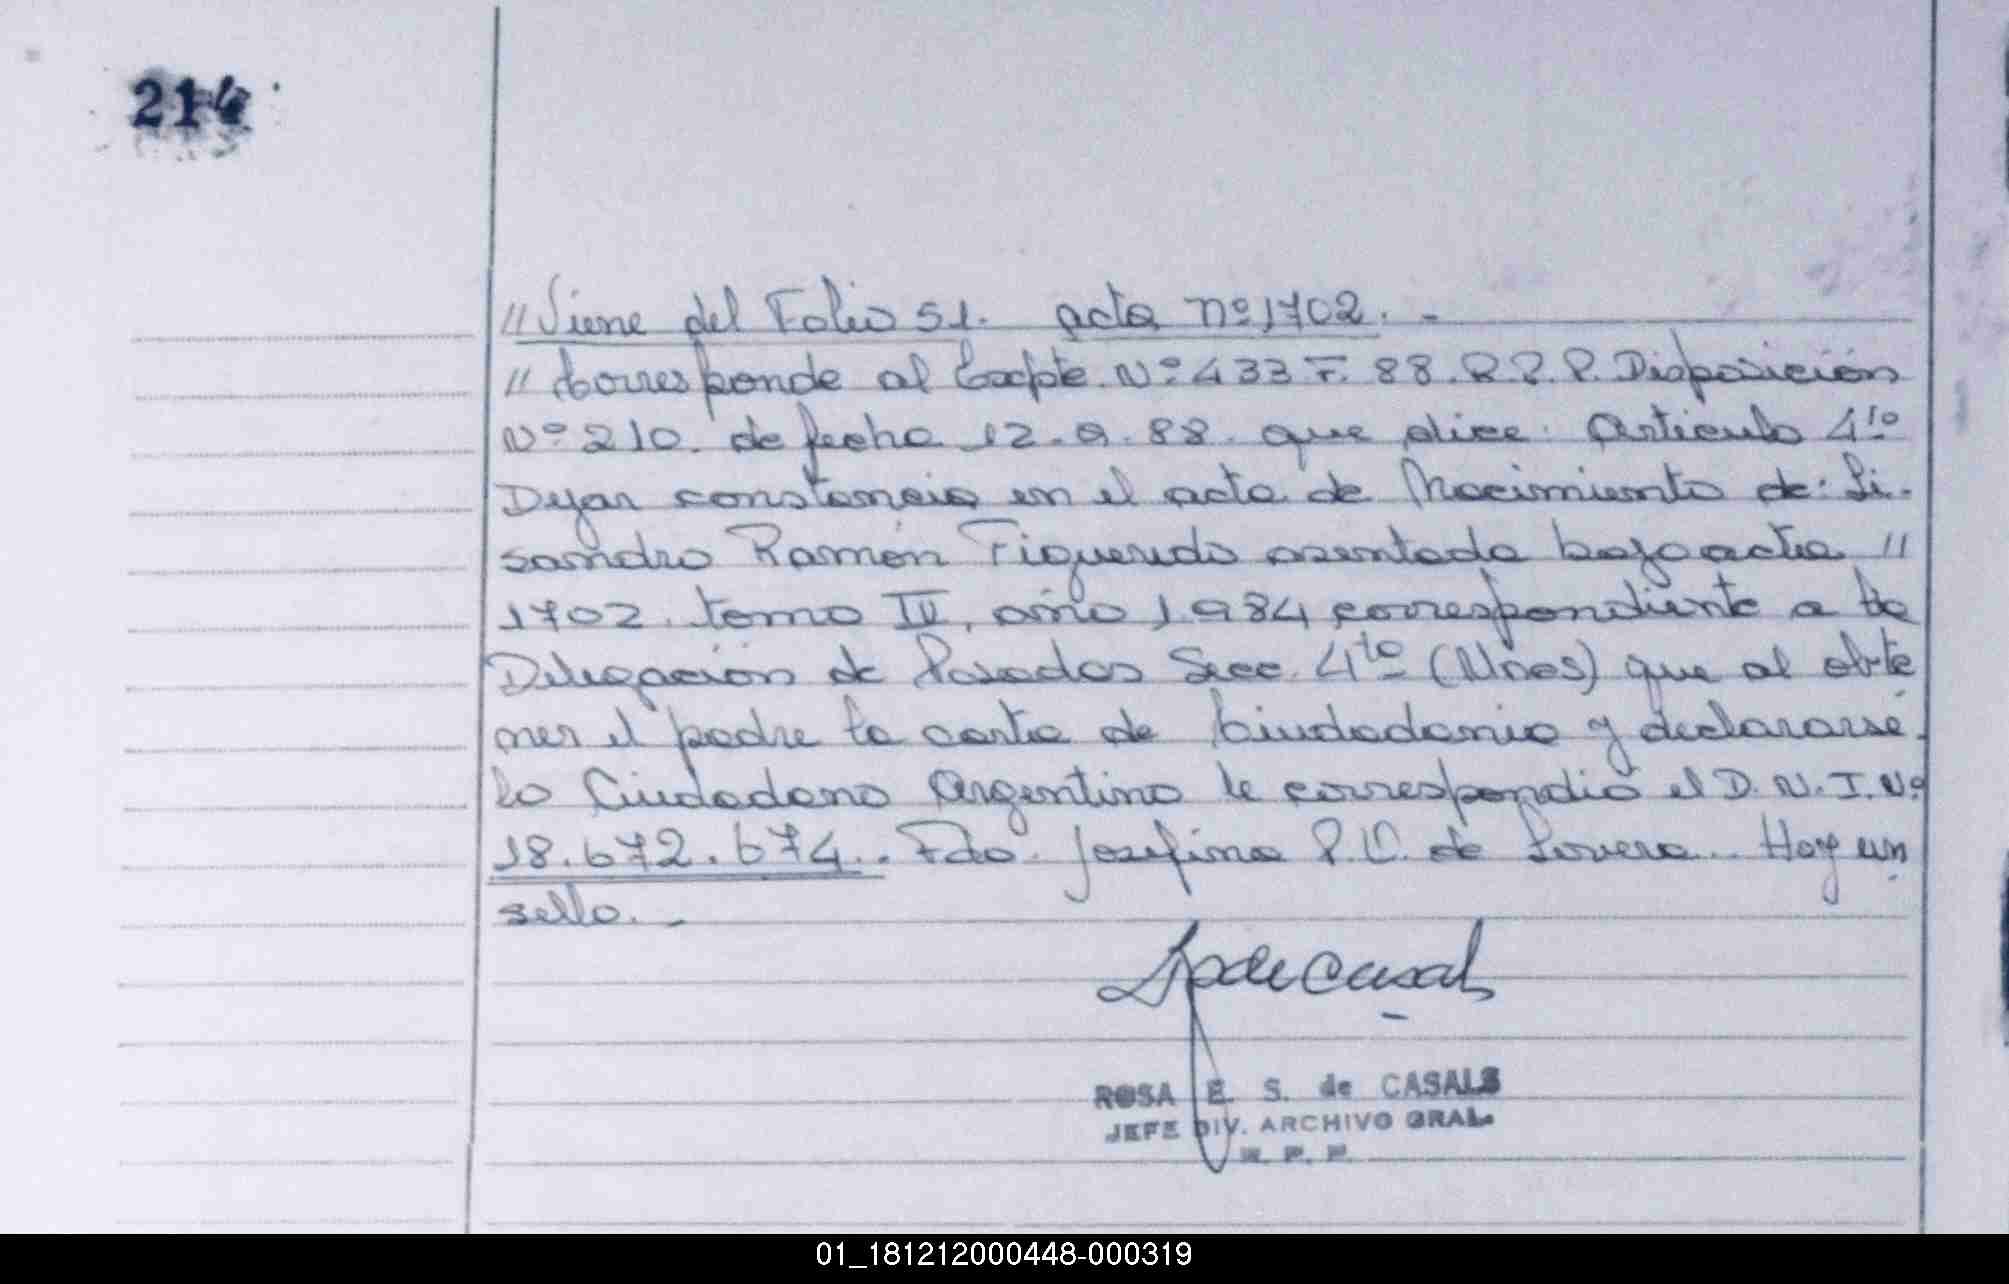 214
// Viene del Folio 51. acta nº 1702. -
// Corresponde al Expte. Nº 433 F. 88. R.P.P. Disposición
Nº 210. de fecha 12.9.88. que dice: Artículo 4to
Dejar constancia en el acta de Nacimiento de: Li-
sandro Ramón Figueredo asentada bajo acta //
1702. tomo III, año 1.984 correspondiente a la
Delegación de Posadas Secc. 4to (Mnes) que al obte
ner el padre la carta de Ciudadania y declararse-
lo Ciudadano Argentino le correspondió el D.N.I. Nº
18.672.674.. Fdo. Josefina P. V. de Lovera.. Hay un
sello. -
S de Casals
ROSA E. S. de CASALS
JEFE DIV. ARCHIVO GRAL.
R. P. P.
01_181212000448-000319